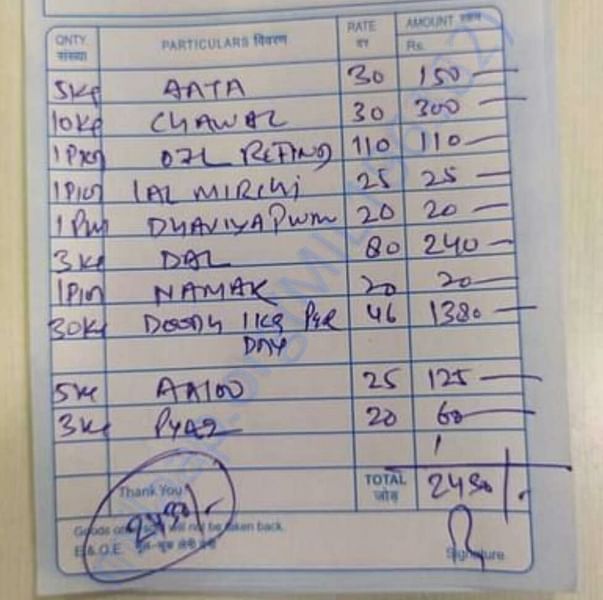 QNTY. संख्या PARTICULARS विवरण RATE दर AMOUNT रकम
Rs.
5Kg AATA 30 150
10Kg CHAWAL 30 300
OIL REFIND 110 110
LAL MIRCHI 25 25
DHANIYA 20 20
3Kg DAL 80 240
NAMAK 20 20
30Kg DOODH 1KG PER 46 1380
DAY
5Kg AALOO 25 125
3Kg PYAZ 20 60
TOTAL जोड़ 2430/-
Thank You
2430/-
Goods once sold will not be taken back.
E.&.O.E. भूल-चूक लेनी देनी Signature